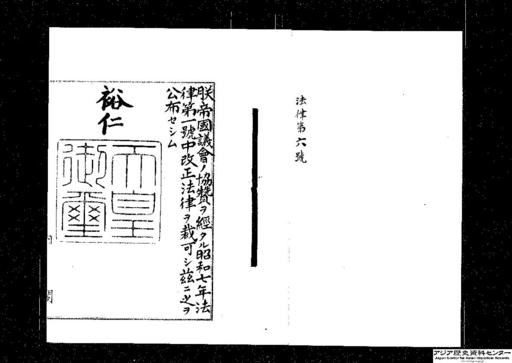 法律第六號
朕帝國議會ノ協贊ヲ經タル昭和七年法
律第一號中改正法律ヲ裁可シ茲ニ之ヲ
公布セシム
裕仁
天皇
御璽
アジア歴史資料センター
Japan Center for Asian Historical Records